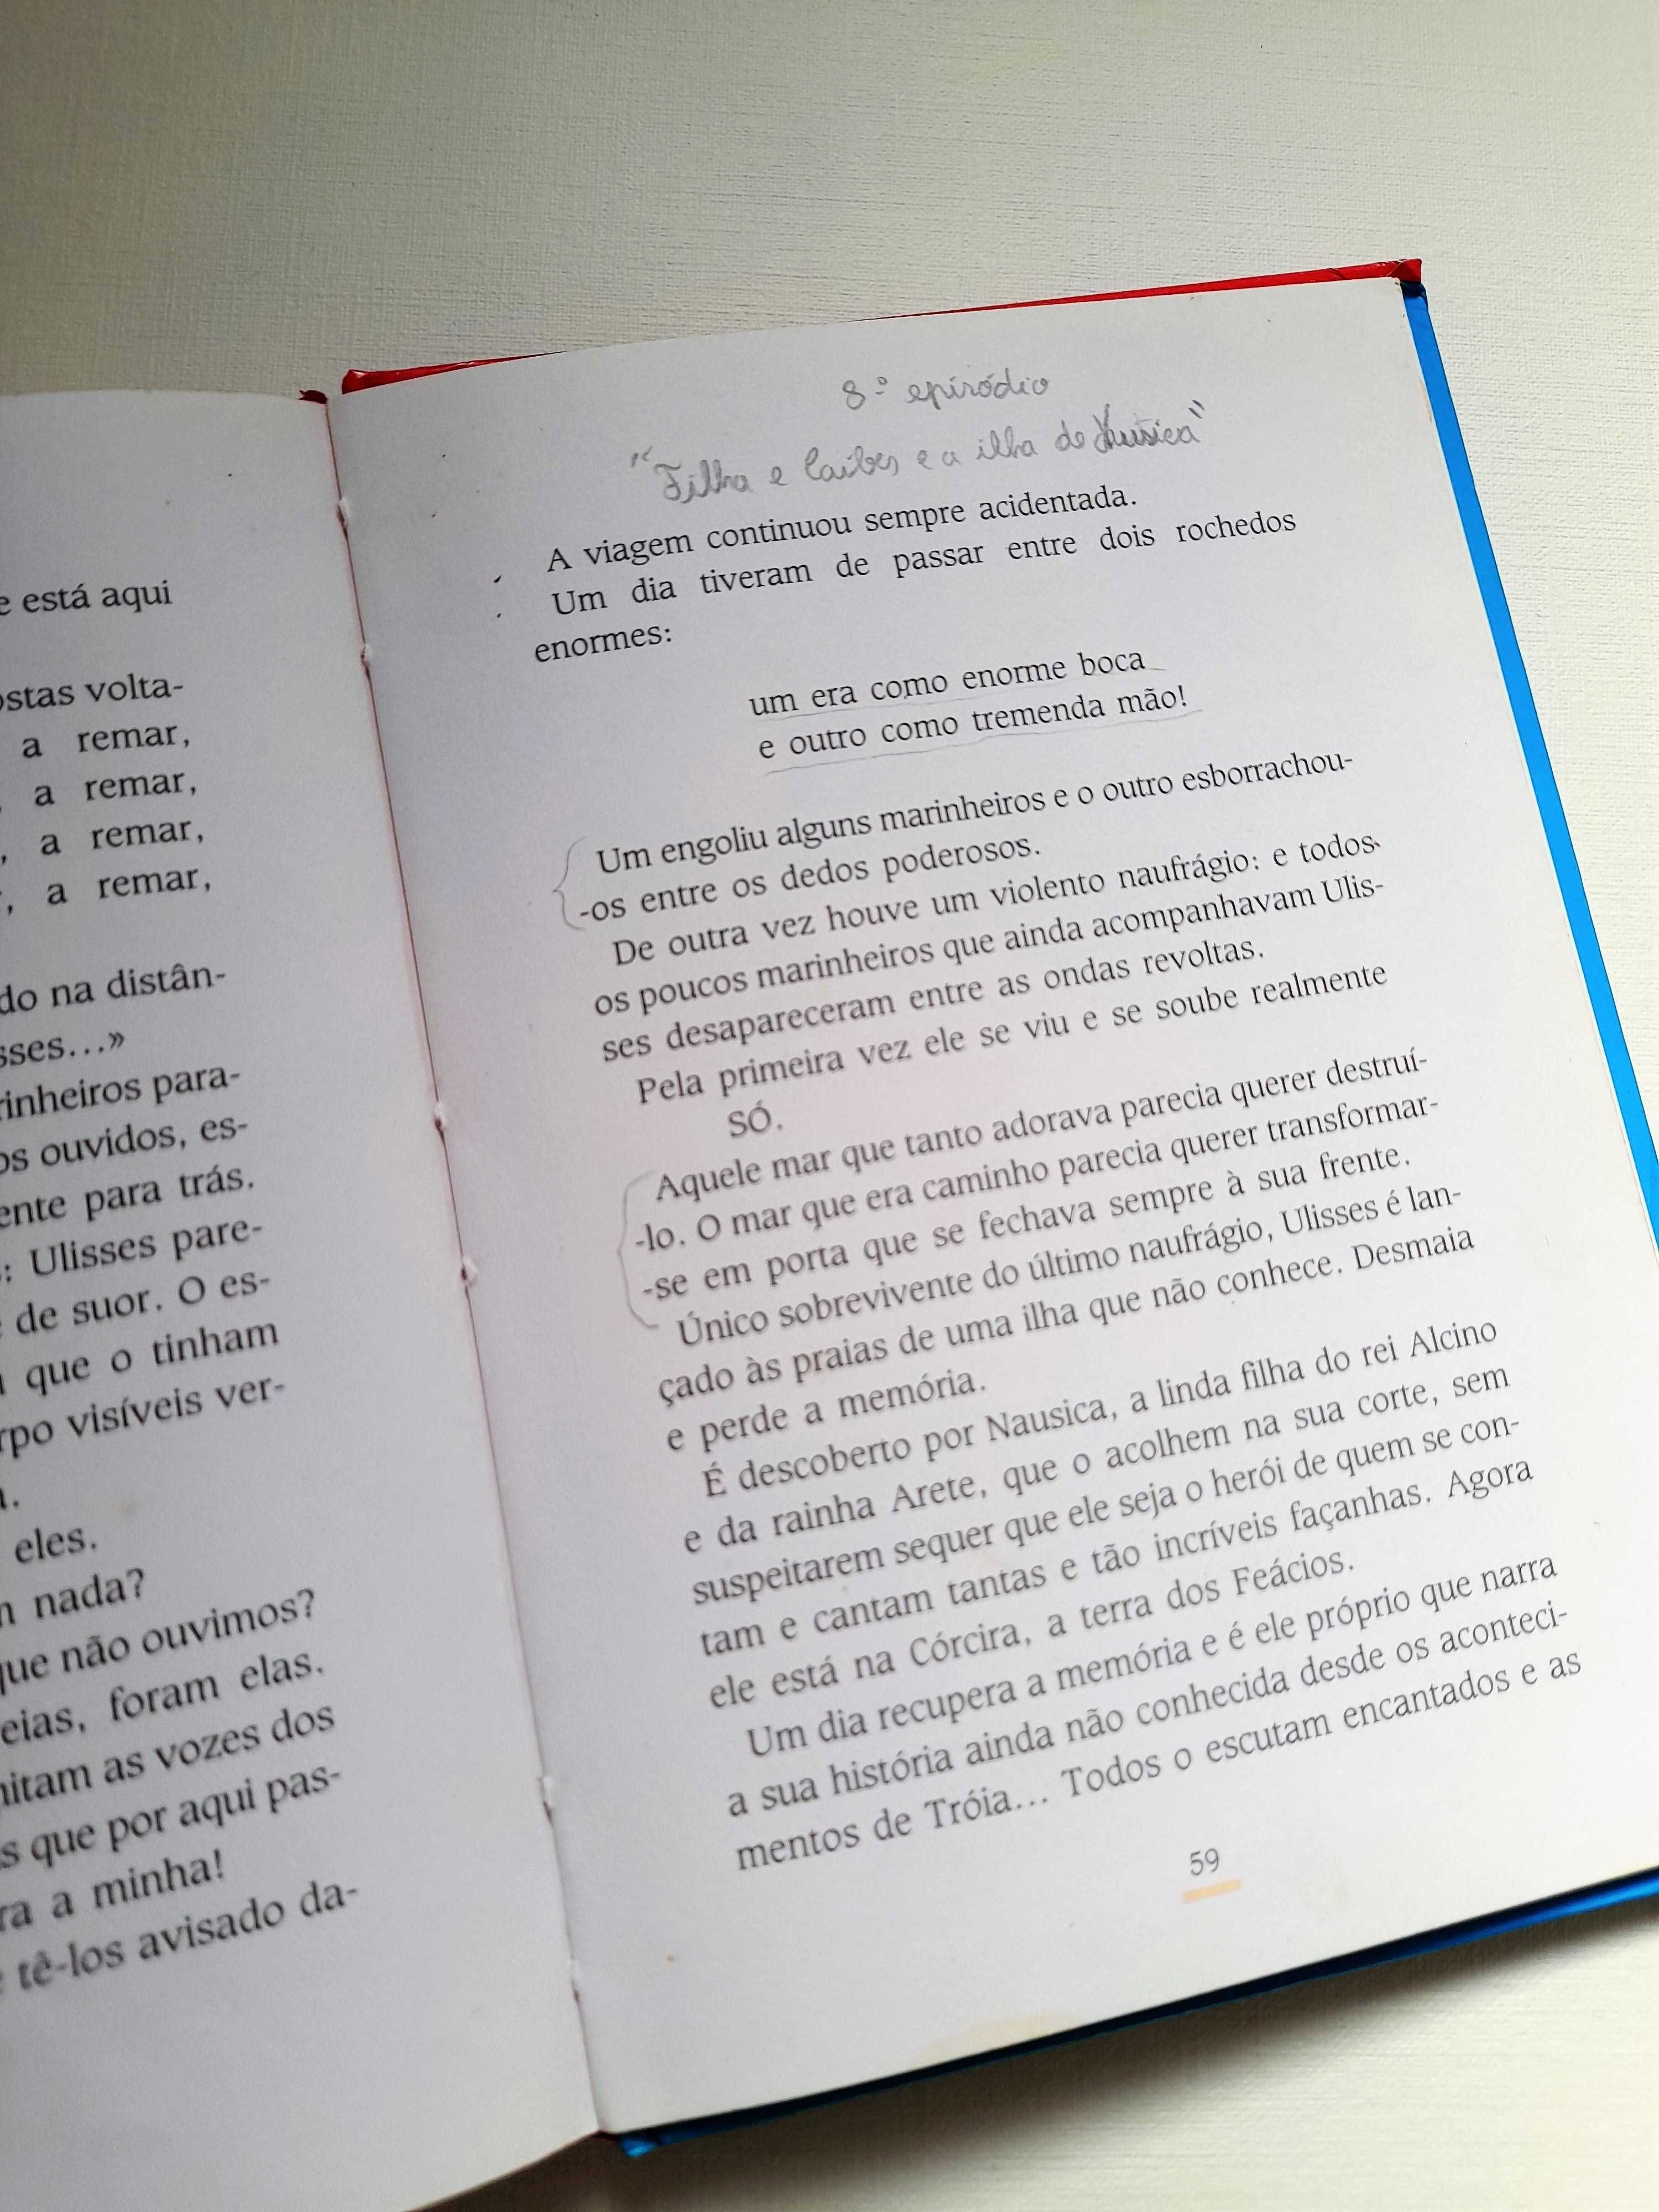 e está aqui
ostas volta-
a remar,
, a remar,
, a remar,
, a remar,
do na distân-
sses...»
rinheiros para-
os ouvidos, es-
ente para trás.
: Ulisses pare-
e de suor. O es-
que o tinham
rpo visíveis ver-
eles.
nada?
que não ouvimos?
eias, foram elas.
mitam as vozes dos
s que por aqui pas-
ra a minha!
tê-los avisado da-
8º episódio
e a ilha de
A viagem continuou sempre acidentada.
Um dia tiveram de passar entre dois rochedos
enormes:
um era como enorme boca
e outro como tremenda mão!
Um engoliu alguns marinheiros e o outro esborrachou-
-os entre os dedos poderosos.
De outra vez houve um violento naufrágio: e todos
os poucos marinheiros que ainda acompanhavam Ulis-
ses desapareceram entre as ondas revoltas.
Pela primeira vez ele se viu e se soube realmente
SÓ.
Aquele mar que tanto adorava parecia querer destruí-
-lo. O mar que era caminho parecia querer transformar-
-se em porta que se fechava sempre à sua frente.
Único sobrevivente do último naufrágio, Ulisses é lan-
çado às praias de uma ilha que não conhece. Desmaia
e perde a memória.
É descoberto por Nausica, a linda filha do rei Alcino
e da rainha Arete, que o acolhem na sua corte, sem
suspeitarem sequer que ele seja o herói de quem se con-
tam e cantam tantas e tão incríveis façanhas. Agora
ele está na Córcira, a terra dos Feácios.
Um dia recupera a memória e é ele próprio que narra
a sua história ainda não conhecida desde os aconteci-
mentos de Tróia... Todos o escutam encantados e as
59